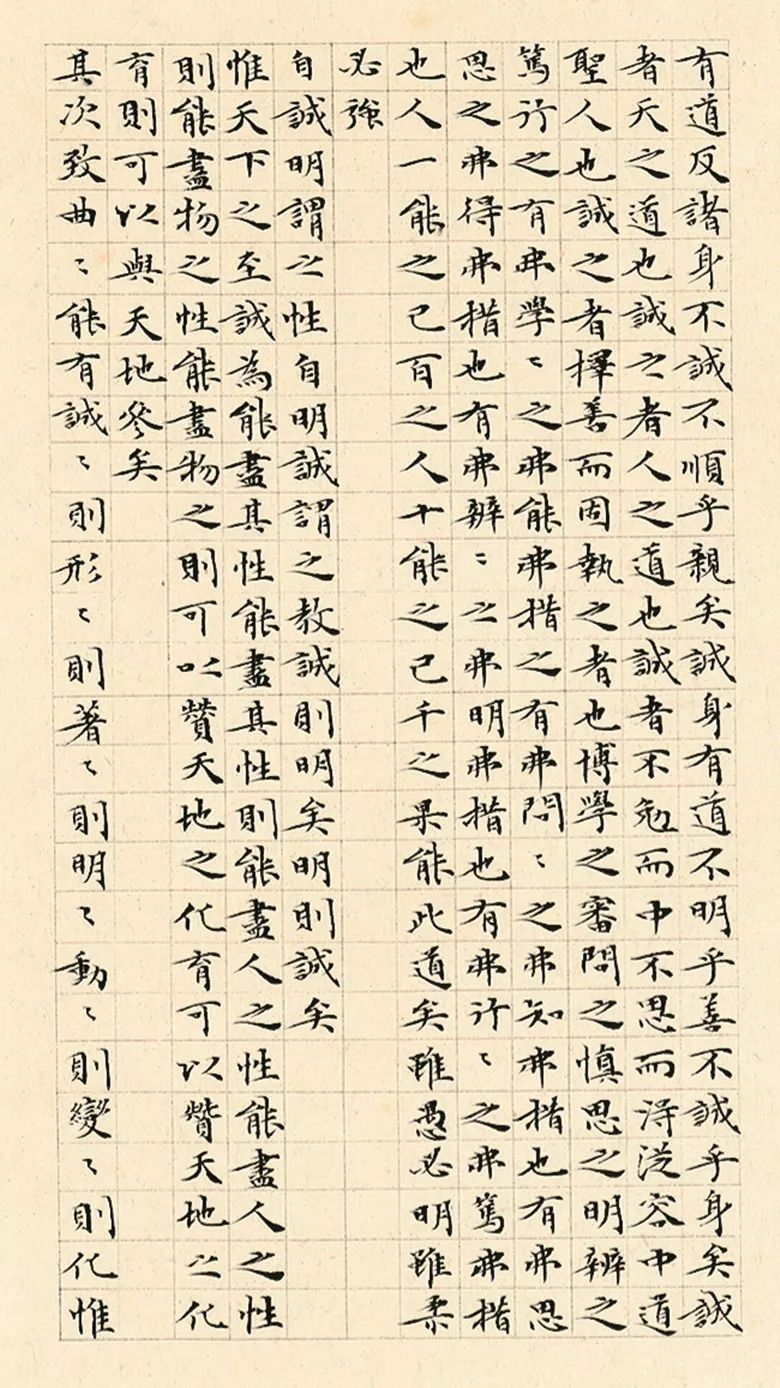 有道反諸身不誠不順乎親矣誠身有道不明乎善不誠乎身矣誠
者天之道也誠之者人之道也誠者不勉而中不思而得從容中道
聖人也誠之者擇善而固執之者也博學之審問之慎思之明辨之
篤行之有弗學〻之弗能弗措之有弗問〻之弗知弗措也有弗思
思之弗得弗措也有弗辨〻之弗明弗措也有弗行〻之弗篤弗措
也人一能之己百之人十能之己千之果能此道矣雖愚必明雖柔
必強
自誠明謂之性自明誠謂之教誠則明矣明則誠矣
惟天下之至誠為能盡其性能盡其性則能盡人之性能盡人之性
則能盡物之性能盡物之則可以贊天地之化育可以贊天地之化
育則可以與天地參矣
其次致曲〻能有誠〻則形〻則著〻則明〻動〻則變〻則化惟